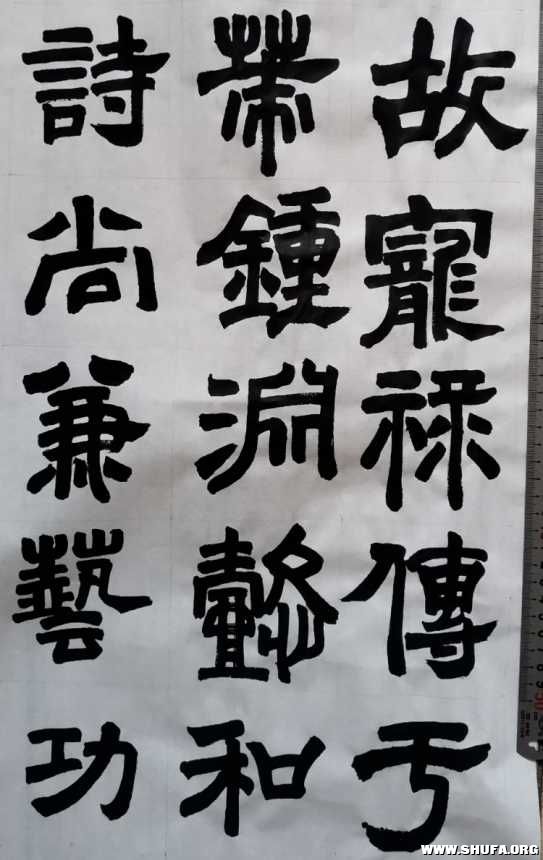 故寵祿傳于
帶鍾淵懿和
詩尚兼藝功
WWW.SHUFA.ORG